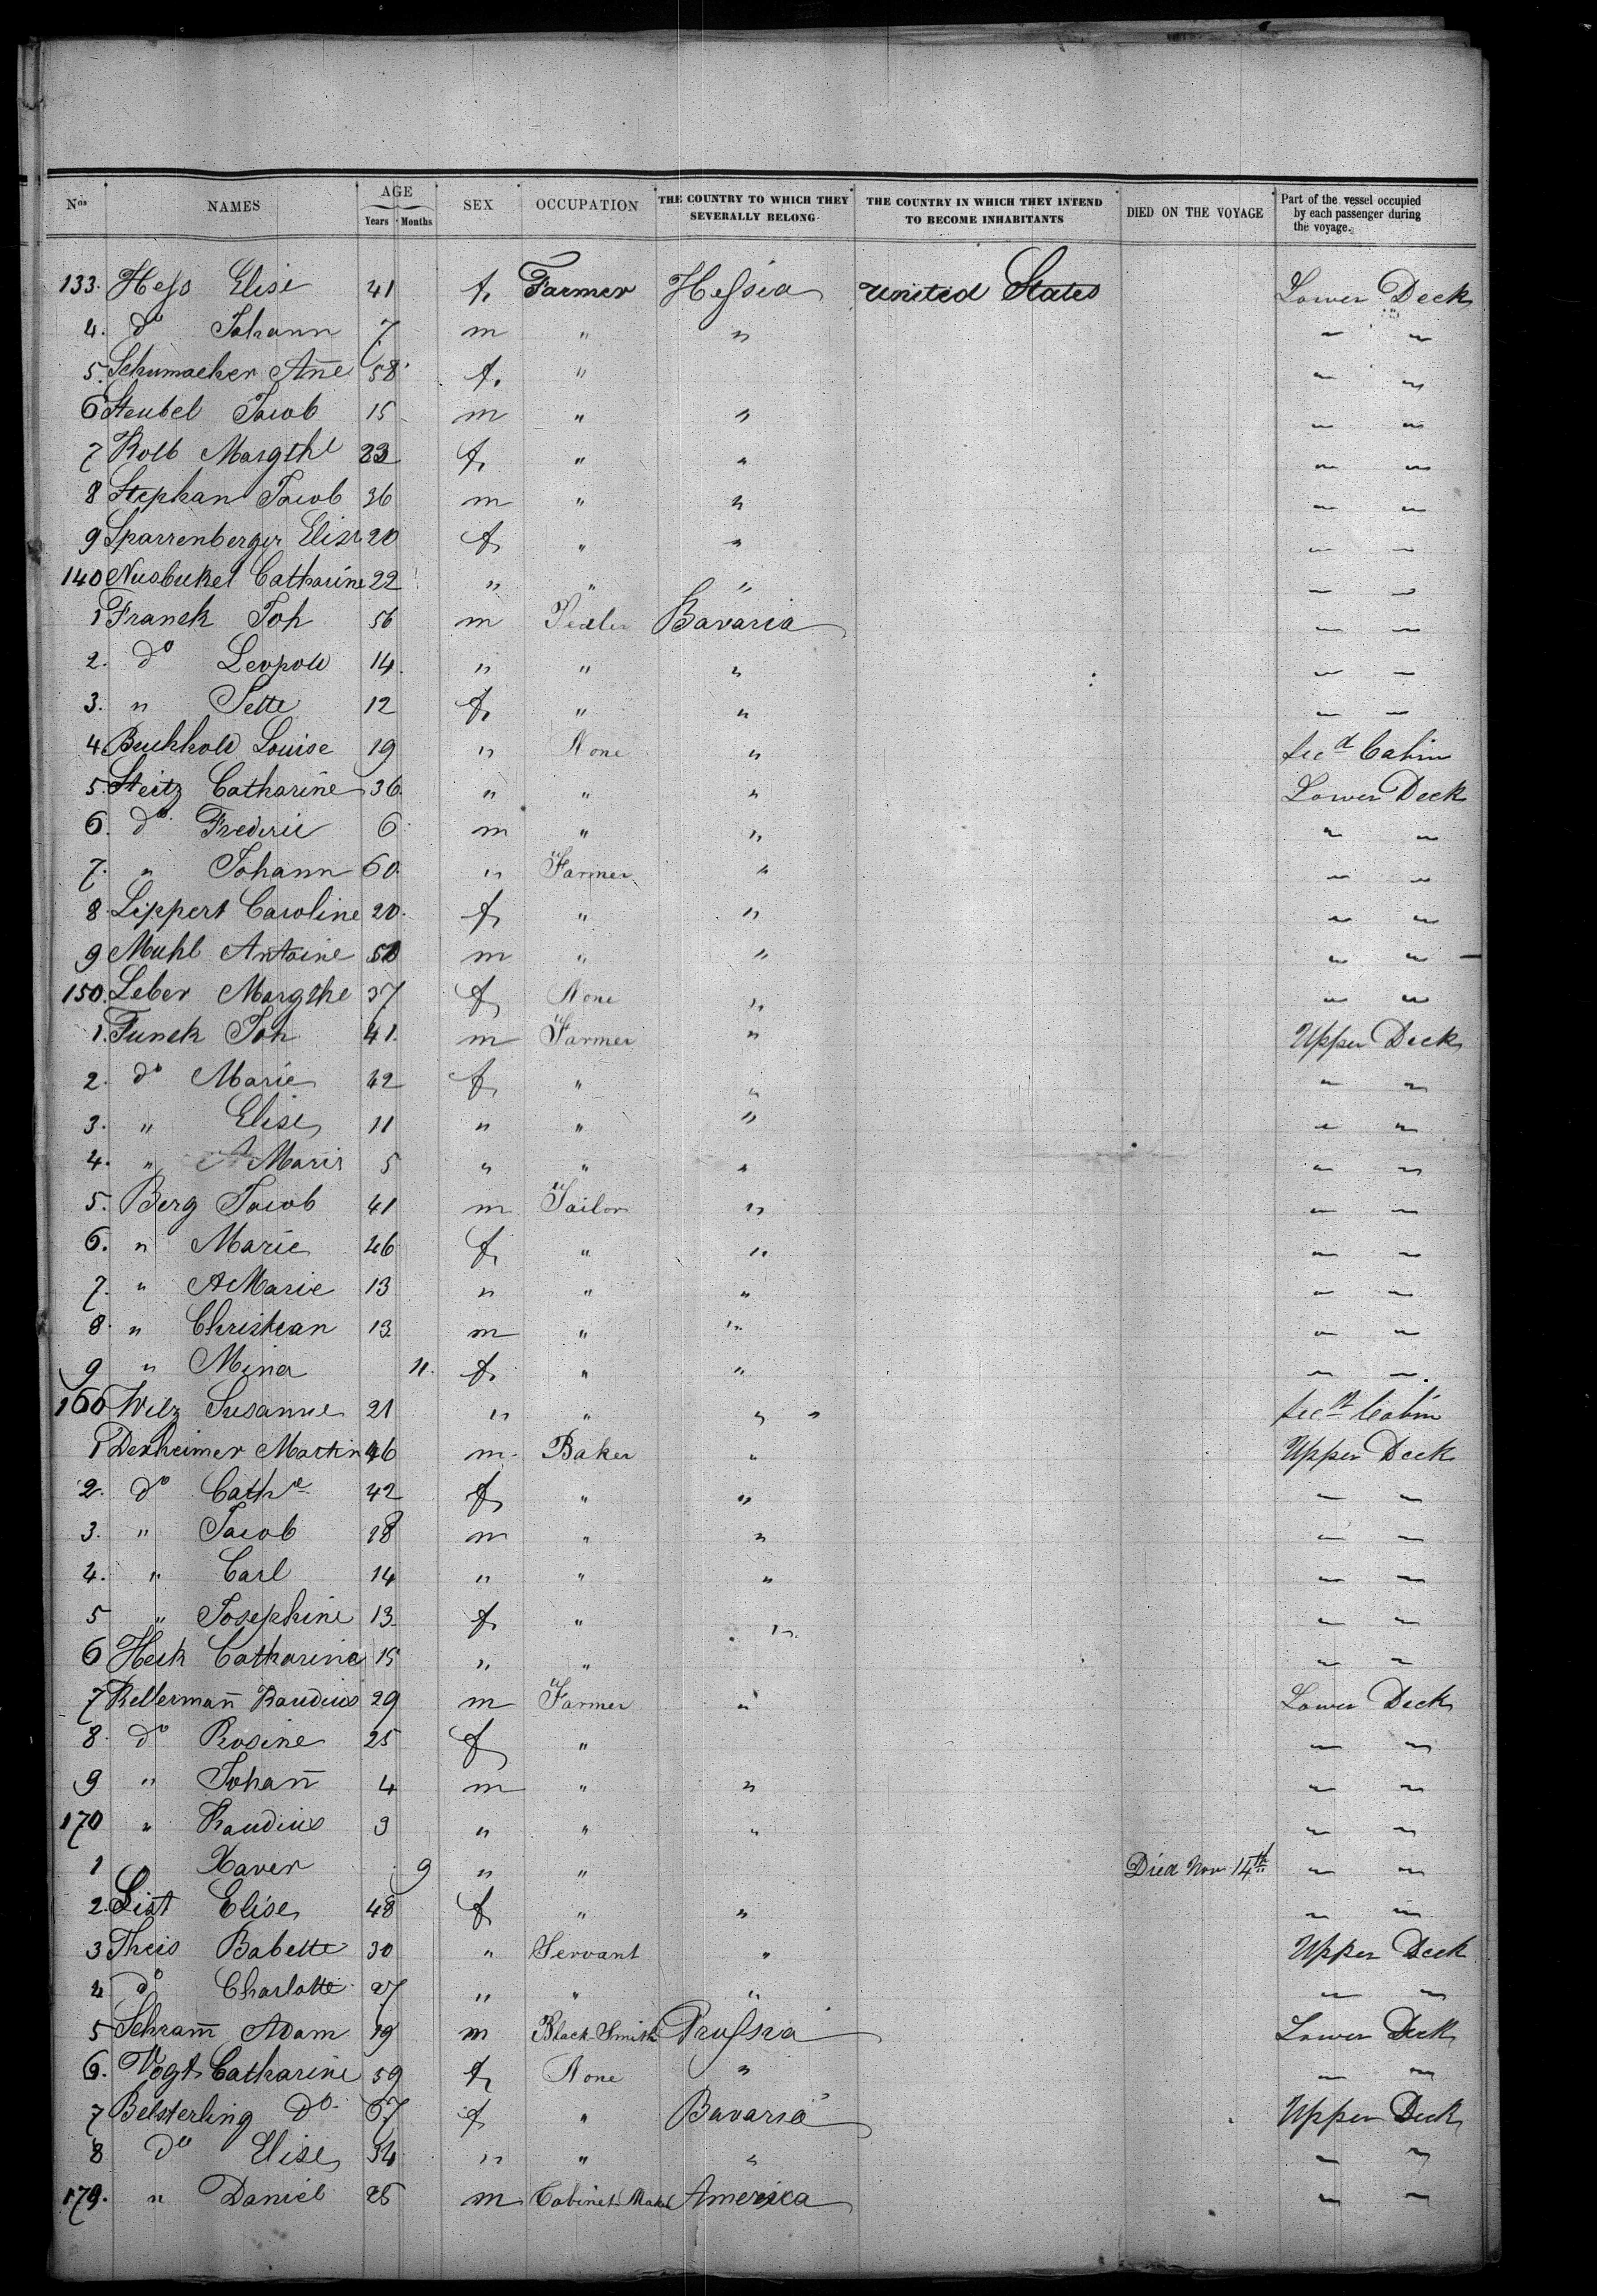 Nos NAMES AGE Years Months SEX OCCUPATION THE COUNTRY TO WHICH THEY SEVERALLY BELONG THE COUNTRY IN WHICH THEY INTEND TO BECOME INHABITANTS DIED ON THE VOYAGE Part of the vessel occupied by each passenger during the voyage.
133. Hess Elise 41 f. Farmer Hessia United States Lower Deck
4. do Johann 7 m " " " "
5. Schumacher Añe 58 f. " " "
6 Steubel Jacob 15 m " " " "
7 Kolb Margthe 23 f. " " " "
8 Stephan Jacob 36 m " " " "
9 Sparrenberger Elise 20 f. " " " "
140 Nusbukel Catharine 22 " " " " "
1 Franck Joh 56 m Pedler Bavaria " "
2. do Leopold 14. " " " " "
3. " Jette 12 f. " " " "
4. Buchhold Louise 19 " None " Secd Cabin
5. Steitz Catharine 36. " " " Lower Deck
6. do Frederic 6 m " " " "
7. " Johann 60. " Farmer " " "
8. Lippert Caroline 20. f. " " " "
9 Muhl Antoine m " " " "
150. Leber Margthe 37 f. None " " "
1. Funck Joh 41. m Farmer " Upper Deck
2. do Marie 42 f. " " " "
3. " Elise 11 " " " " "
4. " A Marie 5 " " " " "
5. Berg Jacob 41 m Tailor " " "
6. " Marie 46 f. " " " "
7. " A Marie 13 " " " " "
8. " Christian 13 m " " " "
9 " Mina 11. f. " " " "
160 Welz Susanne 21 " " " " Secd Cabin
1 Dexheimer Martin 46 m. Baker " Upper Deck
2. do Cathe 42 f. " " " "
3. " Jacob 18 m " " " "
4. " Carl 14 " " " " "
5 " Josephine 13. f. " " " "
6 Heck Catharine 15 " " " "
7 Kellermañ Kaudius 29 m Farmer " Lower Deck
8. do Rosine 25 f " " "
9 " Johañ 4 m " " " "
170 " Kaudius 3 " " " " "
1 Xaver 9 " " Died Nov 14th " "
2. List Elise 48 f. " " " "
3 Theis Babette 30 " Servant " Upper Deck
4 do Charlotte 27 " " " " "
5 Schram̄ Adam 19 m Black-Smith Prussia Lower Deck
6. Vogt Catharine 59 f. None " " "
7 Belsterling Do. 67 f " Bavaria Upper Deck
8 Do Elise 34 " " " " "
179. " Daniel 25 m Cabinet Maker America " "